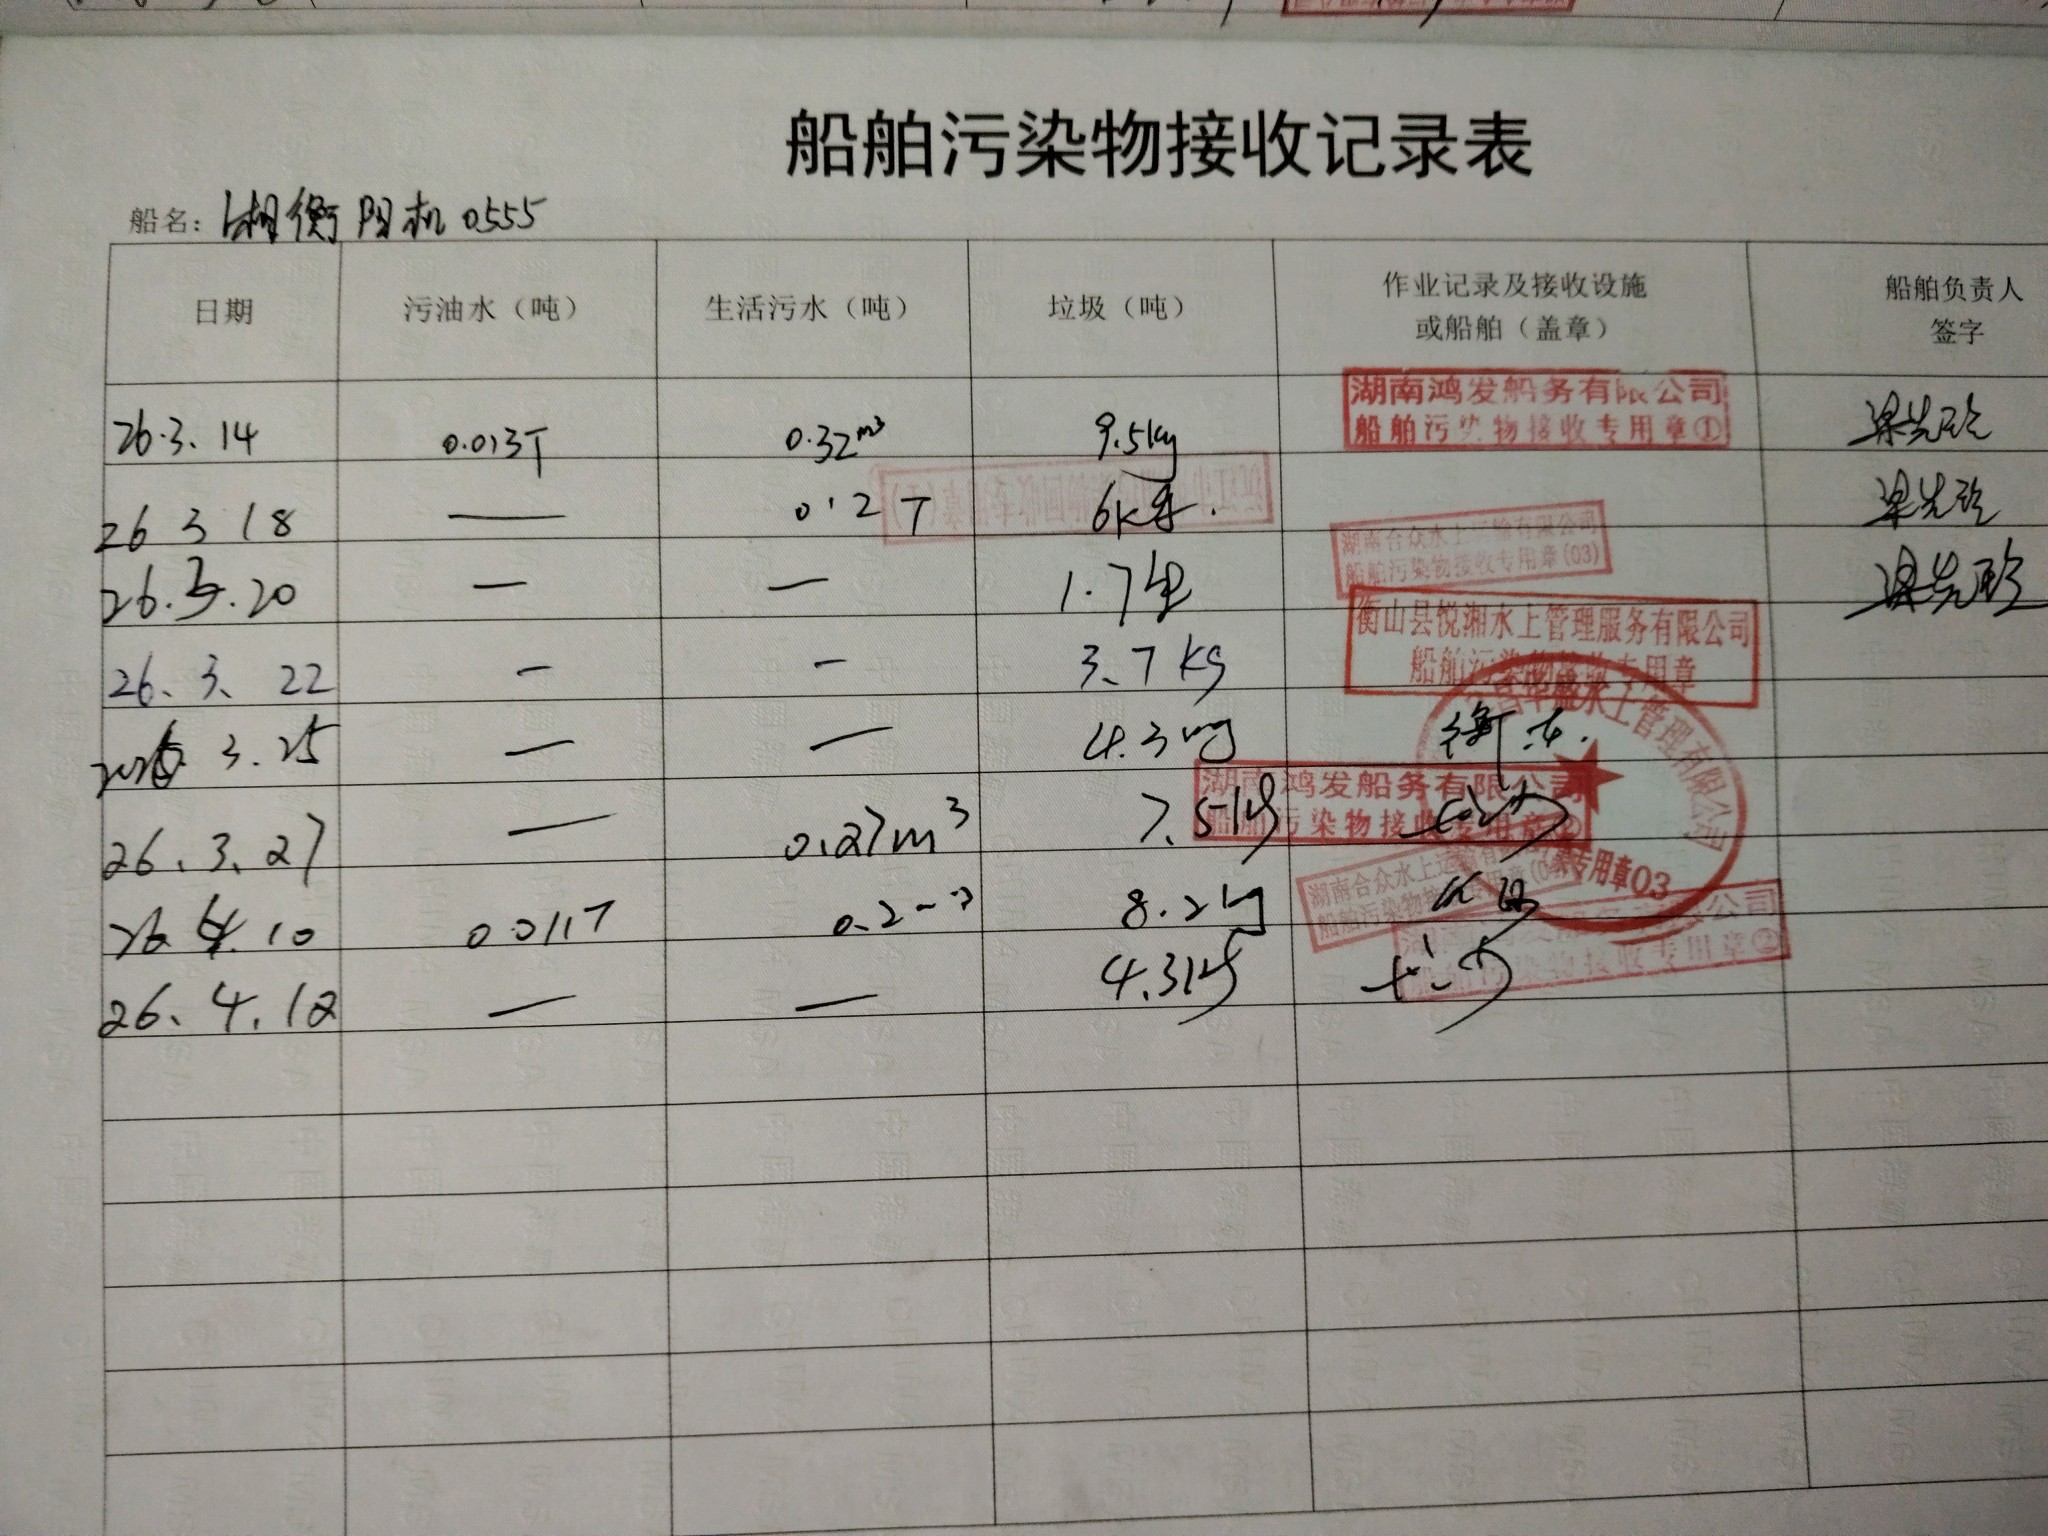 船舶污染物接收记录表
船名：湘衡阳机0555
日期 污油水（吨） 生活污水（吨） 垃圾（吨） 作业记录及接收设施或船舶（盖章） 船舶负责人签字
26.3.14 0.013T 0.32m³ 9.5kg
湖南鸿发船务有限公司
船舶污染物接收专用章①
26 3 18 — 0.2T 6K
湖南合众水上运输有限公司
船舶污染物接收专用章(03)
26.3.20 — — 1.7
衡山县悦湘水上管理服务有限公司
船舶污染物接收专用章
26.3.22 — — 3.7kg
水上管理有限公司
专用章03
2026 3.25 — — 4.3kg 衡东.
湖南鸿发船务有限公司
船舶污染物接收专用章②
26.3.27 — 0.27m³ 7.5kg
湖南合众水上运输有限公司
船舶污染物接收专用章
26.4.10 0.011T 0.2m³ 8.2kg
公司
船舶污染物接收专用章②
26.4.12 — — 4.3kg